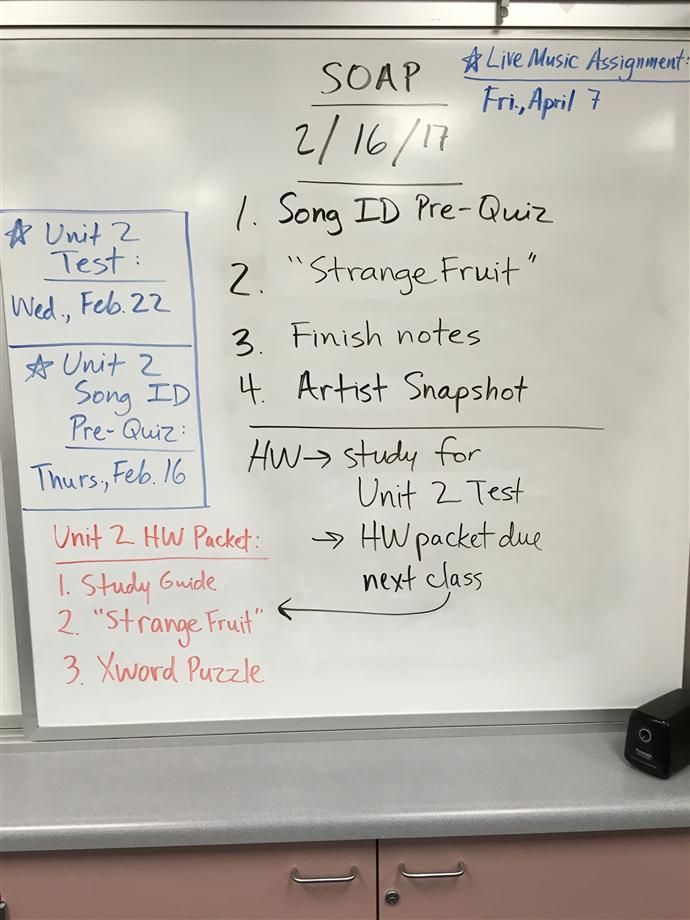 SOAP
2/16/17
1. Song ID Pre-Quiz
2. "Strange Fruit"
3. Finish notes
4. Artist Snapshot
HW→ study for
Unit 2 Test
→ HW packet due
next class
☆ Live Music Assignment:
Fri., April 7
☆ Unit 2
Test:
Wed., Feb. 22
☆ Unit 2
Song ID
Pre-Quiz:
Thurs., Feb. 16
Unit 2 HW Packet:
1. Study Guide
2. "Strange Fruit"
3. Xword Puzzle